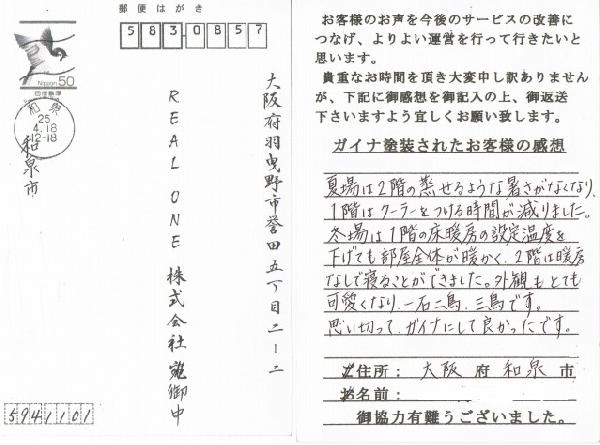 郵便はがき
583-0857
Nippon 50
和泉
25
4.18
12-18
大阪府羽曳野市誉田五丁目二ー二
REAL ONE 株式会社 御中
和泉市
5941101
お客様のお声を今後のサービスの改善に
つなげ、よりよい運営を行って行きたいと
思います。
貴重なお時間を頂き大変申し訳ありません
が、下記に御感想を御記入の上、御返送
下さいますよう宜しくお願い致します。
ガイナ塗装されたお客様の感想
夏場は2階の蒸せるような暑さがなくなり、
1階はクーラーをつける時間が減りました。
冬場は1階の床暖房の設定温度を
下げても部屋全体が暖かく、2階は暖房
なしで寝ることができました。外観もとても
可愛くなり、一石二鳥、三鳥です。
思い切って、ガイナにして良かったです。
ご住所：大阪府和泉市
お名前：
御協力有難うございました。